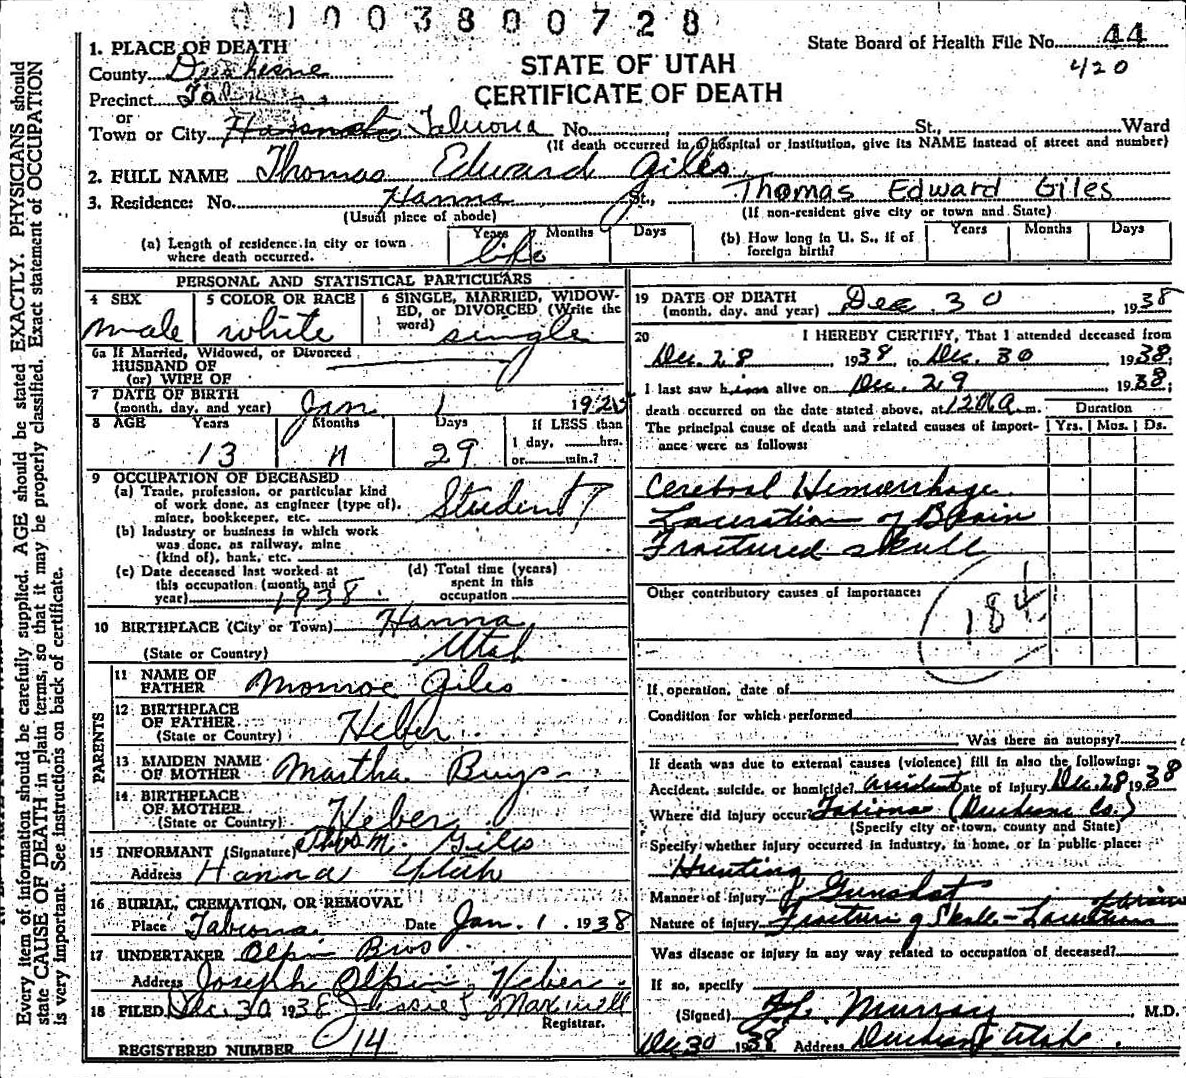 01003800728
State Board of Health File No. 44
420
STATE OF UTAH
CERTIFICATE OF DEATH
1. PLACE OF DEATH
County Duchesne
Precinct Tabiona
or
Town or City Hanna Tabiona No. St., Ward
(If death occurred in a hospital or institution, give its NAME instead of street and number)
2. FULL NAME Thomas Edward Giles
3. Residence: No. Hanna St., Thomas Edward Giles
(Usual place of abode) (If non-resident give city or town and State)
(a) Length of residence in city or town where death occurred. Years Months Days
life
(b) How long in U. S., if of foreign birth? Years Months Days
PERSONAL AND STATISTICAL PARTICULARS
4 SEX 5 COLOR OR RACE 6 SINGLE, MARRIED, WIDOWED, OR DIVORCED (Write the word)
male white single
6a If Married, Widowed, or Divorced
HUSBAND OF
(or) WIFE OF
7 DATE OF BIRTH
(month, day, and year) Jan. 1 1925
8 AGE Years Months Days If LESS than
1 day, hrs.
or min.?
13 11 29
9 OCCUPATION OF DECEASED
(a) Trade, profession, or particular kind
of work done, as engineer (type of),
miner, bookkeeper, etc. Student
(b) Industry or business in which work
was done, as railway, mine
(kind of), bank, etc.
(c) Date deceased last worked at
this occupation (month and
year) 1938
(d) Total time (years)
spent in this
occupation
10 BIRTHPLACE (City or Town) Hanna
(State or Country) Utah
PARENTS
11 NAME OF
FATHER Monroe Giles
12 BIRTHPLACE
OF FATHER
(State or Country) Heber
13 MAIDEN NAME
OF MOTHER Martha Buys
14 BIRTHPLACE
OF MOTHER
(State or Country) Heber
15 INFORMANT (Signature) Thos M. Giles
Address Hanna Utah
16 BURIAL, CREMATION, OR REMOVAL
Place Tabiona Date Jan. 1. 1938
17 UNDERTAKER Olpin Bros
Address Joseph Olpin, Heber.
18 FILED Dec. 30 1938 Jessie L Maxwell
Registrar.
REGISTERED NUMBER 14
19 DATE OF DEATH
(month, day, and year) Dec. 30 1938
20 I HEREBY CERTIFY, That I attended deceased from
Dec. 28, 1938, to Dec. 30 1938;
I last saw him alive on Dec. 29, 1938;
death occurred on the date stated above, at 120 A m.
Duration
The principal cause of death and related causes of importance were as follows: Yrs. Mos. Ds.
Cerebral Hemorrhage
Laceration of Brain
Fractured skull
Other contributory causes of importance:
184
If operation, date of
Condition for which performed
Was there an autopsy?
If death was due to external causes (violence) fill in also the following:
Accident, suicide, or homicide? accident Date of injury Dec. 28 1938
Where did injury occur? Tabiona (Duchesne Co.)
(Specify city or town, county and State)
Specify whether injury occurred in industry, in home, or in public place:
Hunting
Manner of injury Gunshot
Nature of injury Fracture of Skull - Laceration of brain
Was disease or injury in any way related to occupation of deceased?
If so, specify
(Signed) Murray, M.D.
Dec 30 1938 Address Duchesne Utah.
Every item of information should be carefully supplied. AGE should be stated EXACTLY. PHYSICIANS should
state CAUSE OF DEATH in plain terms, so that it may be properly classified. Exact statement of OCCUPATION
is very important. See instructions on back of certificate.